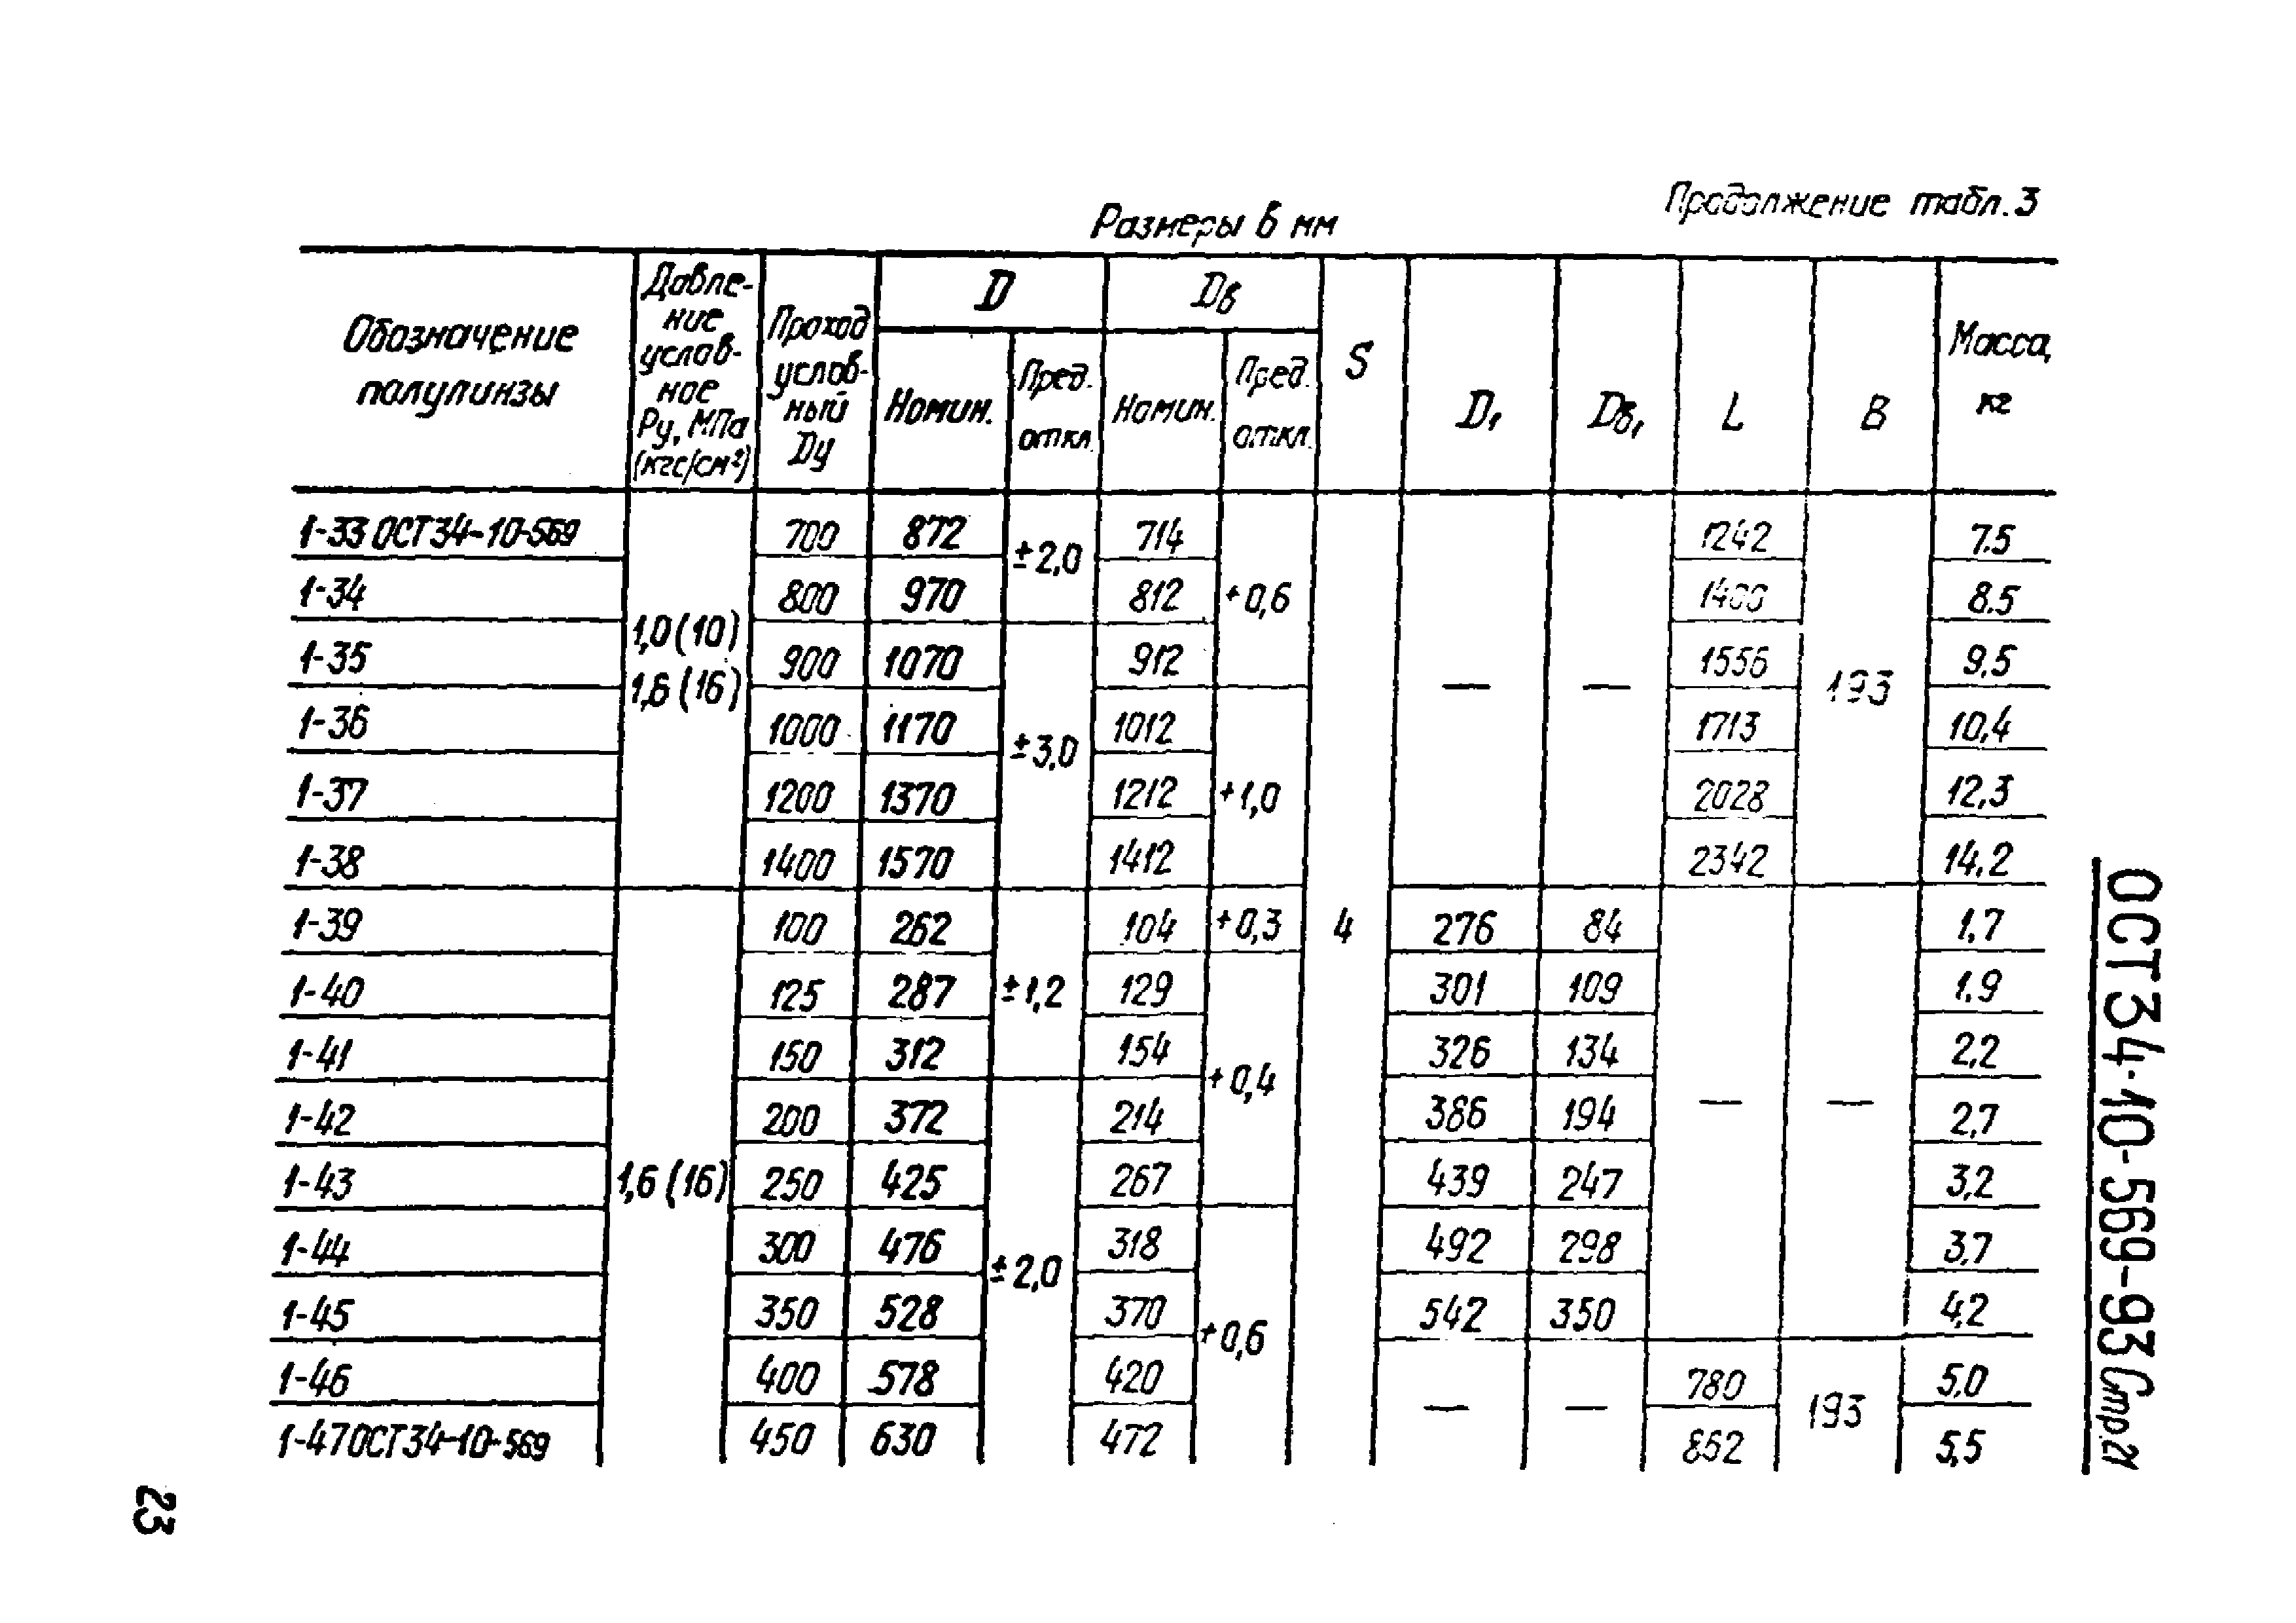 Продолжение табл. 3
Размеры в мм
Обозначение полулинзы | Давление условное Ру, МПа (кгс/см²) | Проход условный Dу | D Номин. | D Пред. откл. | Dв Номин. | Dв Пред. откл. | S | D₁ | Dв₁ | L | B | Масса, кг
1-33 ОСТ 34-10-569 | 1,0 (10) 1,6 (16) | 700 | 872 | ±2,0 | 714 | +0,6 | 4 | — | — | 1242 | 193 | 7.5
1-34 | 800 | 970 | 812 | 1400 | 8.5
1-35 | 900 | 1070 | ±3,0 | 912 | 1556 | 9,5
1-36 | 1000 | 1170 | 1012 | +1,0 | 1713 | 10,4
1-37 | 1200 | 1370 | 1212 | 2028 | 12,3
1-38 | 1400 | 1570 | 1412 | 2342 | 14,2
1-39 | 1,6 (16) | 100 | 262 | ±1,2 | 104 | +0,3 | 276 | 84 | — | — | 1,7
1-40 | 125 | 287 | 129 | +0,4 | 301 | 109 | 1,9
1-41 | 150 | 312 | 154 | 326 | 134 | 2,2
1-42 | 200 | 372 | ±2,0 | 214 | 386 | 194 | 2,7
1-43 | 250 | 425 | 267 | 439 | 247 | 3,2
1-44 | 300 | 476 | 318 | +0,6 | 492 | 298 | 3,7
1-45 | 350 | 528 | 370 | 542 | 350 | 4,2
1-46 | 400 | 578 | 420 | — | — | 780 | 193 | 5,0
1-47 ОСТ 34-10-569 | 450 | 630 | 472 | 862 | 5,5
ОСТ 34-10-569-93 Стр. 21
23